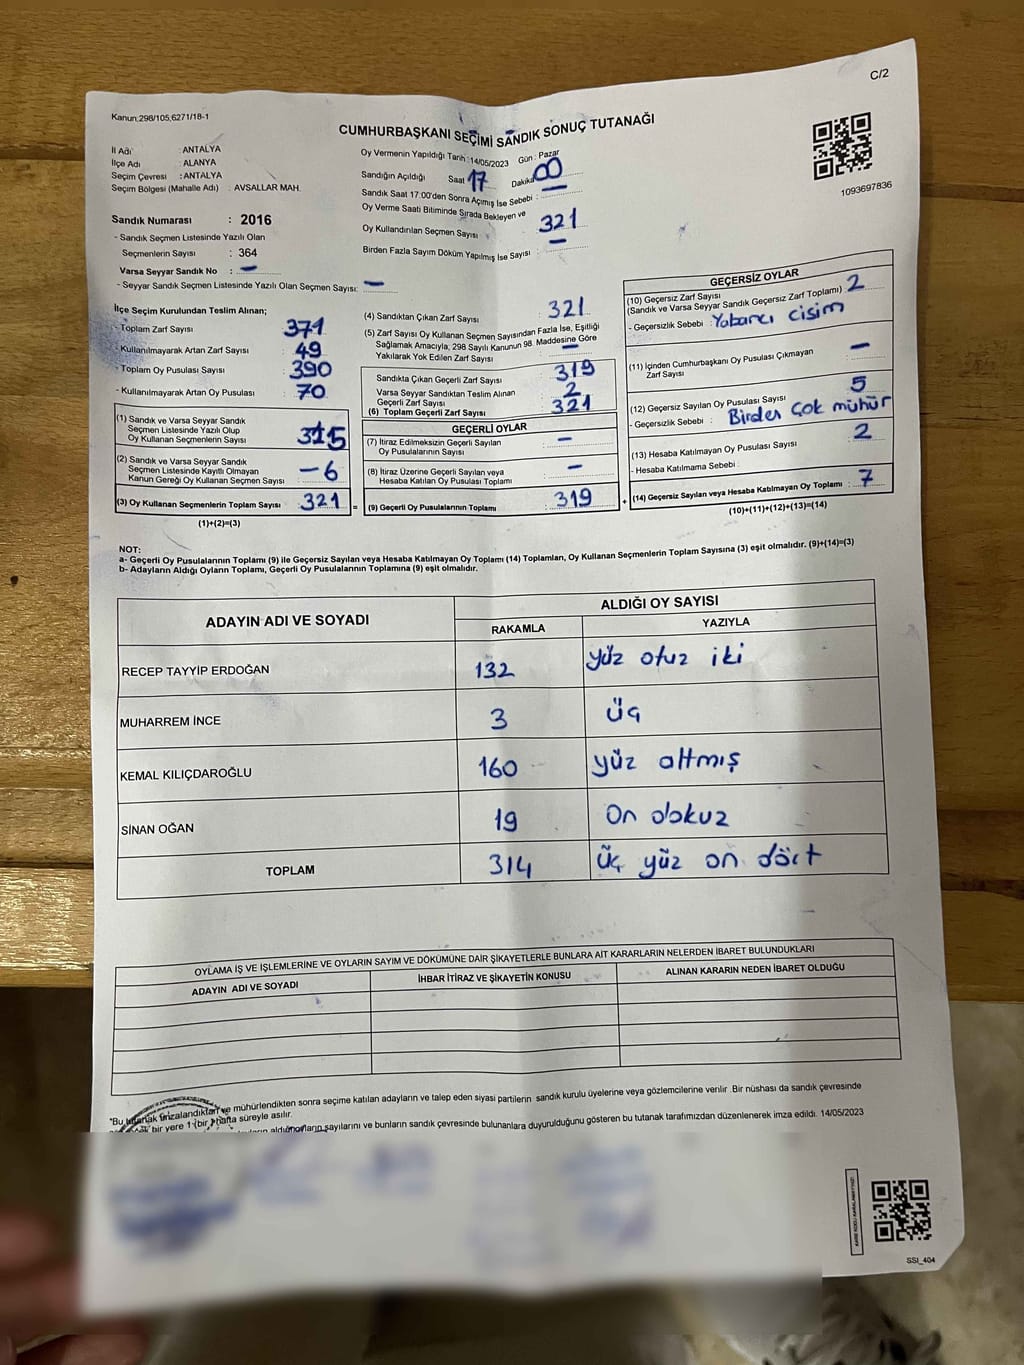 C/2
Kanun;298/105,6271/18-1
CUMHURBAŞKANI SEÇİMİ SANDIK SONUÇ TUTANAĞI
1093697836
İl Adı : ANTALYA
İlçe Adı : ALANYA
Seçim Çevresi : ANTALYA
Seçim Bölgesi (Mahalle Adı) : AVSALLAR MAH.
Sandık Numarası : 2016
- Sandık Seçmen Listesinde Yazılı Olan
Seçmenlerin Sayısı : 364
Varsa Seyyar Sandık No : -
- Seyyar Sandık Seçmen Listesinde Yazılı Olan Seçmen Sayısı: -
Oy Vermenin Yapıldığı Tarih :14/05/2023 Gün : Pazar
Sandığın Açıldığı Saat 17 Dakika 00
Sandık Saat 17:00'den Sonra Açılmış İse Sebebi : -
Oy Verme Saati Bitiminde Sırada Bekleyen ve
Oy Kullandırılan Seçmen Sayısı : 321
Birden Fazla Sayım Döküm Yapılmış İse Sayısı : -
İlçe Seçim Kurulundan Teslim Alınan;
- Toplam Zarf Sayısı : 371
- Kullanılmayarak Artan Zarf Sayısı : 49
- Toplam Oy Pusulası Sayısı : 390
- Kullanılmayarak Artan Oy Pusulası : 70
(1) Sandık ve Varsa Seyyar Sandık
Seçmen Listesinde Yazılı Olup
Oy Kullanan Seçmenlerin Sayısı : 315
(2) Sandık ve Varsa Seyyar Sandık
Seçmen Listesinde Kayıtlı Olmayan
Kanun Gereği Oy Kullanan Seçmen Sayısı : -6
(3) Oy Kullanan Seçmenlerin Toplam Sayısı : 321
(1)+(2)=(3)
(4) Sandıktan Çıkan Zarf Sayısı : 321
(5) Zarf Sayısı Oy Kullanan Seçmen Sayısından Fazla İse, Eşitliği
Sağlamak Amacıyla, 298 Sayılı Kanunun 98. Maddesine Göre
Yakılarak Yok Edilen Zarf Sayısı : -
Sandıkta Çıkan Geçerli Zarf Sayısı : 319
Varsa Seyyar Sandıktan Teslim Alınan
Geçerli Zarf Sayısı : 2
(6) Toplam Geçerli Zarf Sayısı : 321
GEÇERLİ OYLAR
(7) İtiraz Edilmeksizin Geçerli Sayılan
Oy Pusulalarının Sayısı : -
(8) İtiraz Üzerine Geçerli Sayılan veya
Hesaba Katılan Oy Pusulası Toplamı : -
(9) Geçerli Oy Pusulalarının Toplamı : 319
GEÇERSİZ OYLAR
(10) Geçersiz Zarf Sayısı
(Sandık ve Varsa Seyyar Sandık Geçersiz Zarf Toplamı) : 2
- Geçersizlik Sebebi : Yabancı cisim
(11) İçinden Cumhurbaşkanı Oy Pusulası Çıkmayan
Zarf Sayısı : -
(12) Geçersiz Sayılan Oy Pusulası Sayısı : 5
- Geçersizlik Sebebi : Birden çok mühür
(13) Hesaba Katılmayan Oy Pusulası Sayısı : 2
- Hesaba Katılmama Sebebi :
(14) Geçersiz Sayılan veya Hesaba Katılmayan Oy Toplamı : 7
(10)+(11)+(12)+(13)=(14)
NOT:
a- Geçerli Oy Pusulalarının Toplamı (9) ile Geçersiz Sayılan veya Hesaba Katılmayan Oy Toplamı (14) Toplamları, Oy Kullanan Seçmenlerin Toplam Sayısına (3) eşit olmalıdır. (9)+(14)=(3)
b- Adayların Aldığı Oyların Toplamı, Geçerli Oy Pusulalarının Toplamına (9) eşit olmalıdır.
ADAYIN ADI VE SOYADI ALDIĞI OY SAYISI
RAKAMLA YAZIYLA
RECEP TAYYİP ERDOĞAN 132 yüz otuz iki
MUHARREM İNCE 3 üç
KEMAL KILIÇDAROĞLU 160 yüz altmış
SİNAN OĞAN 19 on dokuz
TOPLAM 314 üç yüz on dört
OYLAMA İŞ VE İŞLEMLERİNE VE OYLARIN SAYIM VE DÖKÜMÜNE DAİR ŞİKAYETLERLE BUNLARA AİT KARARLARIN NELERDEN İBARET BULUNDUKLARI
ADAYIN ADI VE SOYADI İHBAR İTİRAZ VE ŞİKAYETİN KONUSU ALINAN KARARIN NEDEN İBARET OLDUĞU
*Bu tutanak imzalandıktan ve mühürlendikten sonra seçime katılan adayların ve talep eden siyasi partilerin sandık kurulu üyelerine veya gözlemcilerine verilir. Bir nüshası da sandık çevresinde
bir yere 1 (bir) hafta süreyle asılır.
aldığı oyların sayılarını ve bunların sandık çevresinde bulunanlara duyurulduğunu gösteren bu tutanak tarafımızdan düzenlenerek imza edildi. 14/05/2023
SSI_404